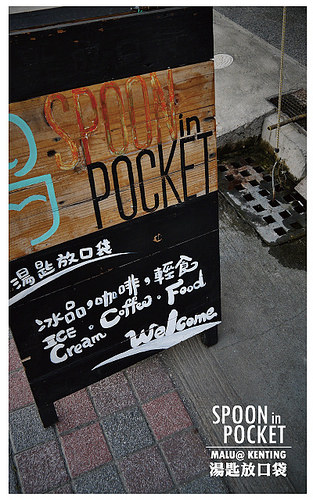 SPOON
in
POCKET
湯匙放口袋
冰品，咖啡，輕食
ICE Cream · Coffee · Food
Welcome
SPOON in
POCKET
MALU@ KENTING
湯匙放口袋